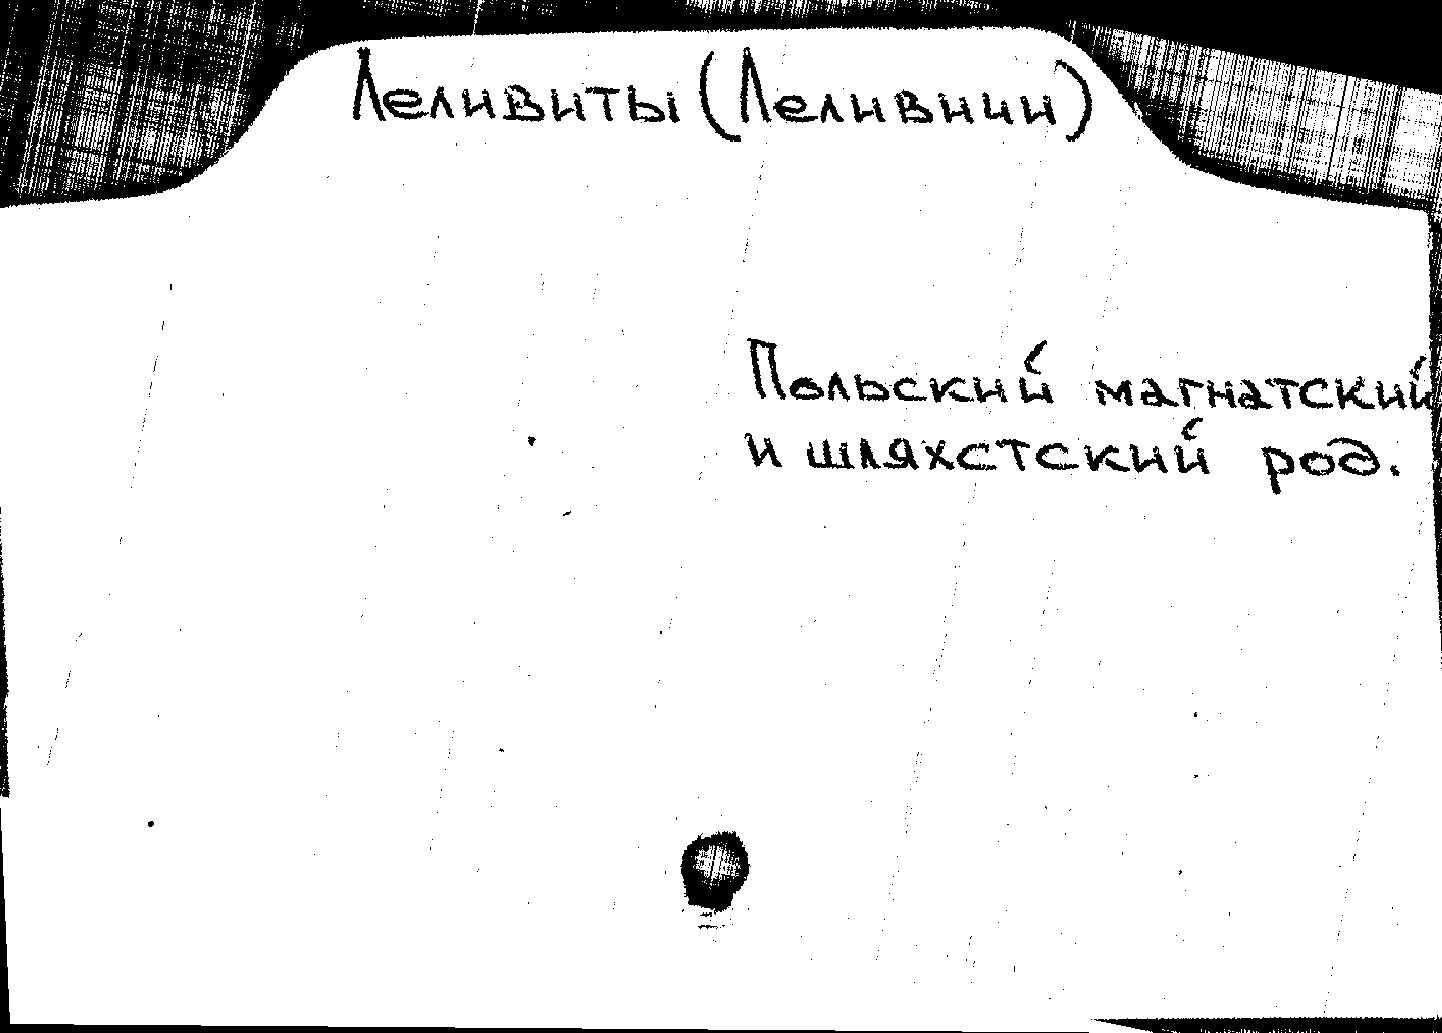 Леливиты (Леливичи)
Польский магнатский
и шляхстский род.